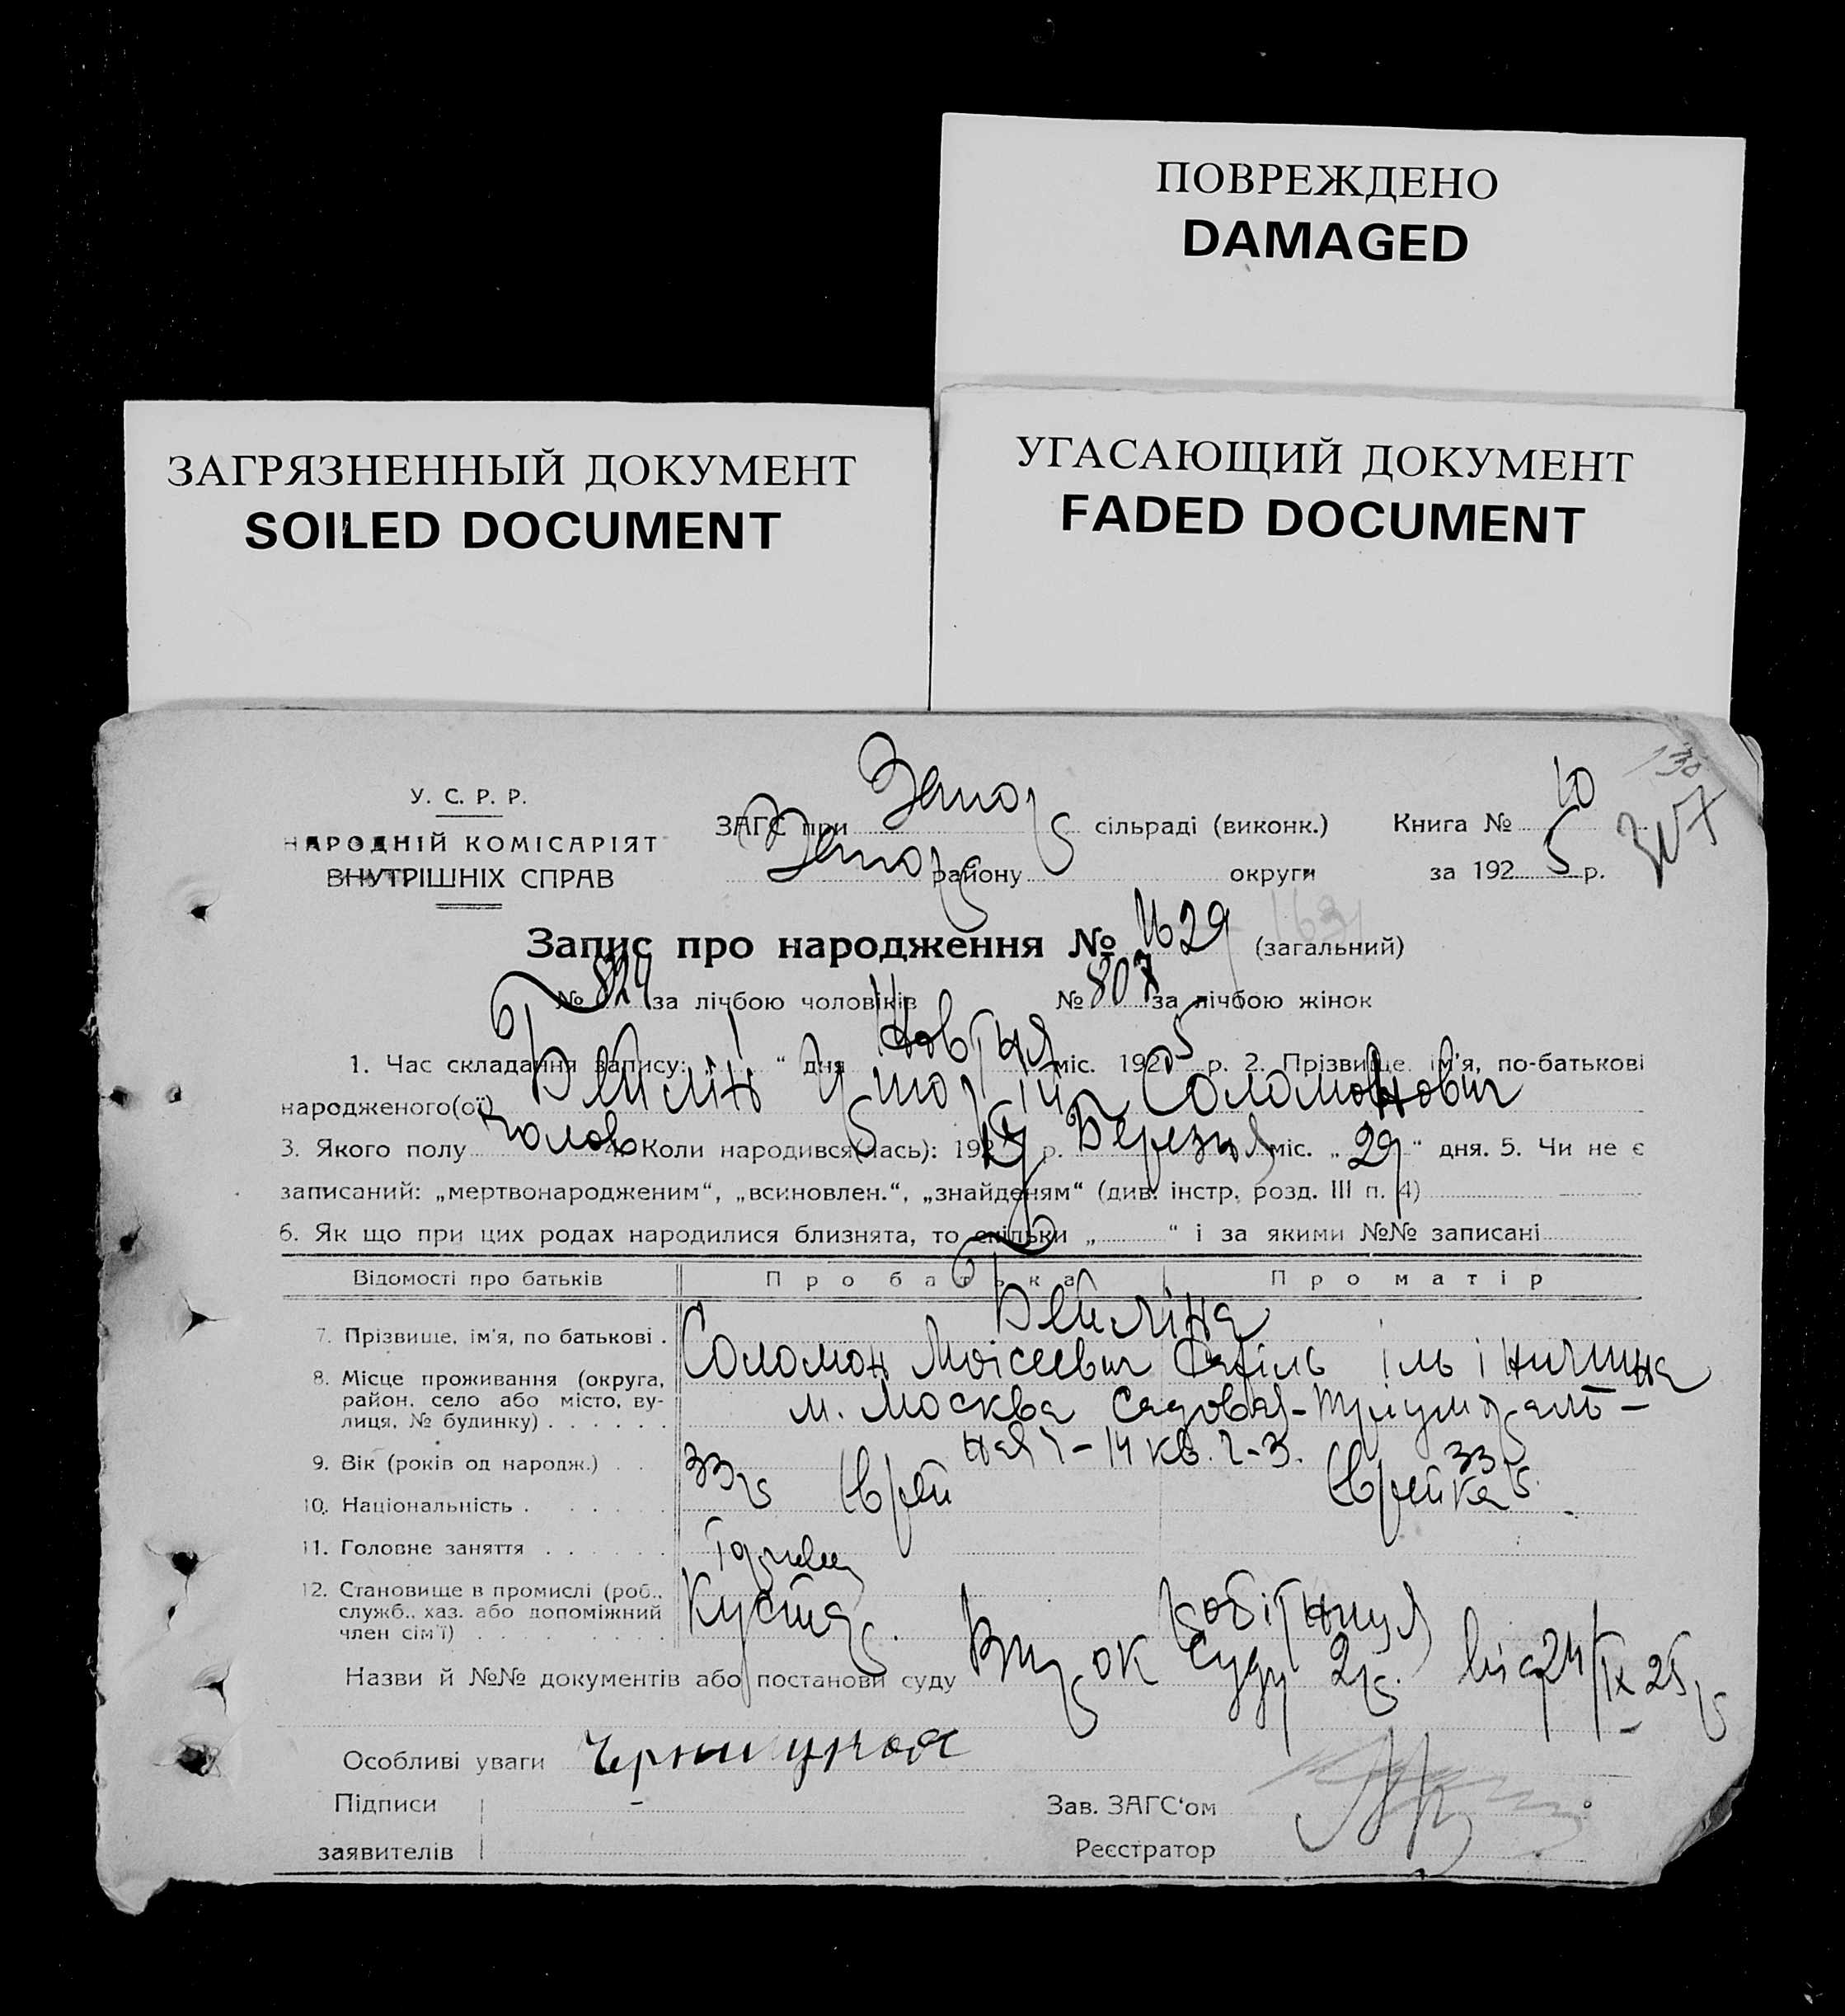 ПОВРЕЖДЕНО
DAMAGED
ЗАГРЯЗНЕННЫЙ ДОКУМЕНТ
SOILED DOCUMENT
УГАСАЮЩИЙ ДОКУМЕНТ
FADED DOCUMENT
У. С. Р. Р.
НАРОДНІЙ КОМІСАРІЯТ
ВНУТРІШНІХ СПРАВ
ЗАГС при Запор сільраді (виконк.) Книга № 10
Запор району округи за 192 5 р.
317
Запис про народження № 1629 (загальний)
№ 824 за лічбою чоловіків № 807 за лічбою жінок
1. Час складання запису: „ 1 “ дня Жовтня міс. 192 5 р. 2. Прізвище, ім'я, по-батькові
народженого(ої) Бейлін Соломонович
3. Якого полу чолов 4. Коли народився(лась): 19 р. Березня міс. „ 29 “ дня. 5. Чи не є
записаний: „мертвонародженим“, „всиновлен.“, „знайденям“ (див. інстр. розд. III п. 4)
6. Як що при цих родах народилися близнята, то скільки „ “ і за якими №№ записані
Відомості про батьків Про батька Про матір
7. Прізвище, ім'я, по батькові . Бейліна
Соломон Моісеевич
8. Місце проживання (округа, район, село або місто, вулиця, № будинку) . . . . . . м. Москва Садовая-Тріумфаль-
ная 4-14 кв. 2-3.
9. Вік (років од народж.) . . 33 р 33 р.
10. Національність . . . . . Еврей Еврейка
11. Головне заняття . . . . .
12. Становище в промислі (роб., служб., хаз. або допоміжний член сім'ї) . . . . . . . . Кустар. Робітниця
Назви й №№ документів або постанови суду Вирок Суду 2 р. від 24/IX 25 р
Особливі уваги
Підписи
заявителів
Зав. ЗАГС'ом
Реєстратор